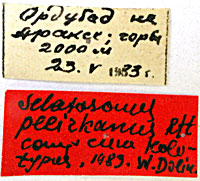 Ордубад на
Араксе; горы
2000 м
23. V 1983 г.
Selatosomus
pellirkanus
typus, 1983. W. Dolin